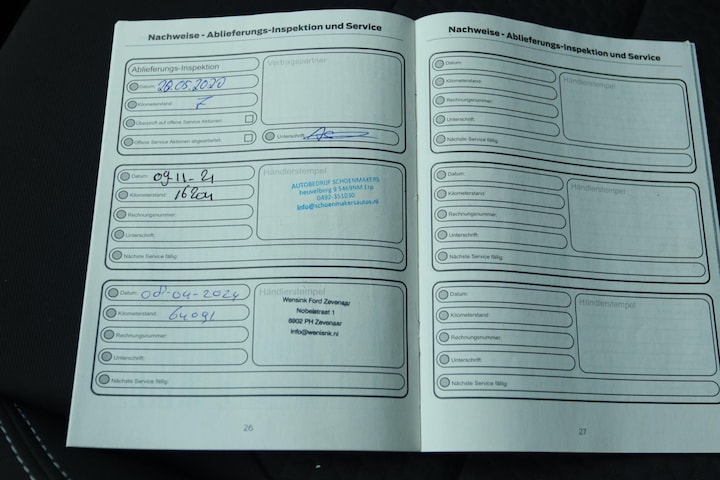 Nachweise - Ablieferungs-Inspektion und Service
Ablieferungs-Inspektion
Vertragspartner
Datum: 20.05.2020
Kilometerstand: 7
Überprüft auf offene Service Aktionen:
Offene Service Aktionen abgearbeitet:
Unterschrift:
Datum: 09-11-21
Händlerstempel
Kilometerstand:
AUTOBEDRIJF SCHOENMAKERS
heuvelberg 9 5469NM Erp
0492-351030
info@schoenmakersautos.nl
Rechnungsnummer:
Unterschrift:
Nächste Service fällig:
Datum: 08-04-2024
Händlerstempel
Kilometerstand: 64091
Wensink Ford Zevenaar
Nobelstraat 1
6902 PH Zevenaar
info@wensink.nl
Rechnungsnummer:
Unterschrift:
Nächste Service fällig:
26
Nachweise - Ablieferungs-Inspektion und Service
Datum:
Händlerstempel
Kilometerstand:
Rechnungsnummer:
Unterschrift:
Nächste Service fällig:
Datum:
Händlerstempel
Kilometerstand:
Rechnungsnummer:
Unterschrift:
Nächste Service fällig:
Datum:
Händlerstempel
Kilometerstand:
Rechnungsnummer:
Unterschrift:
Nächste Service fällig:
27